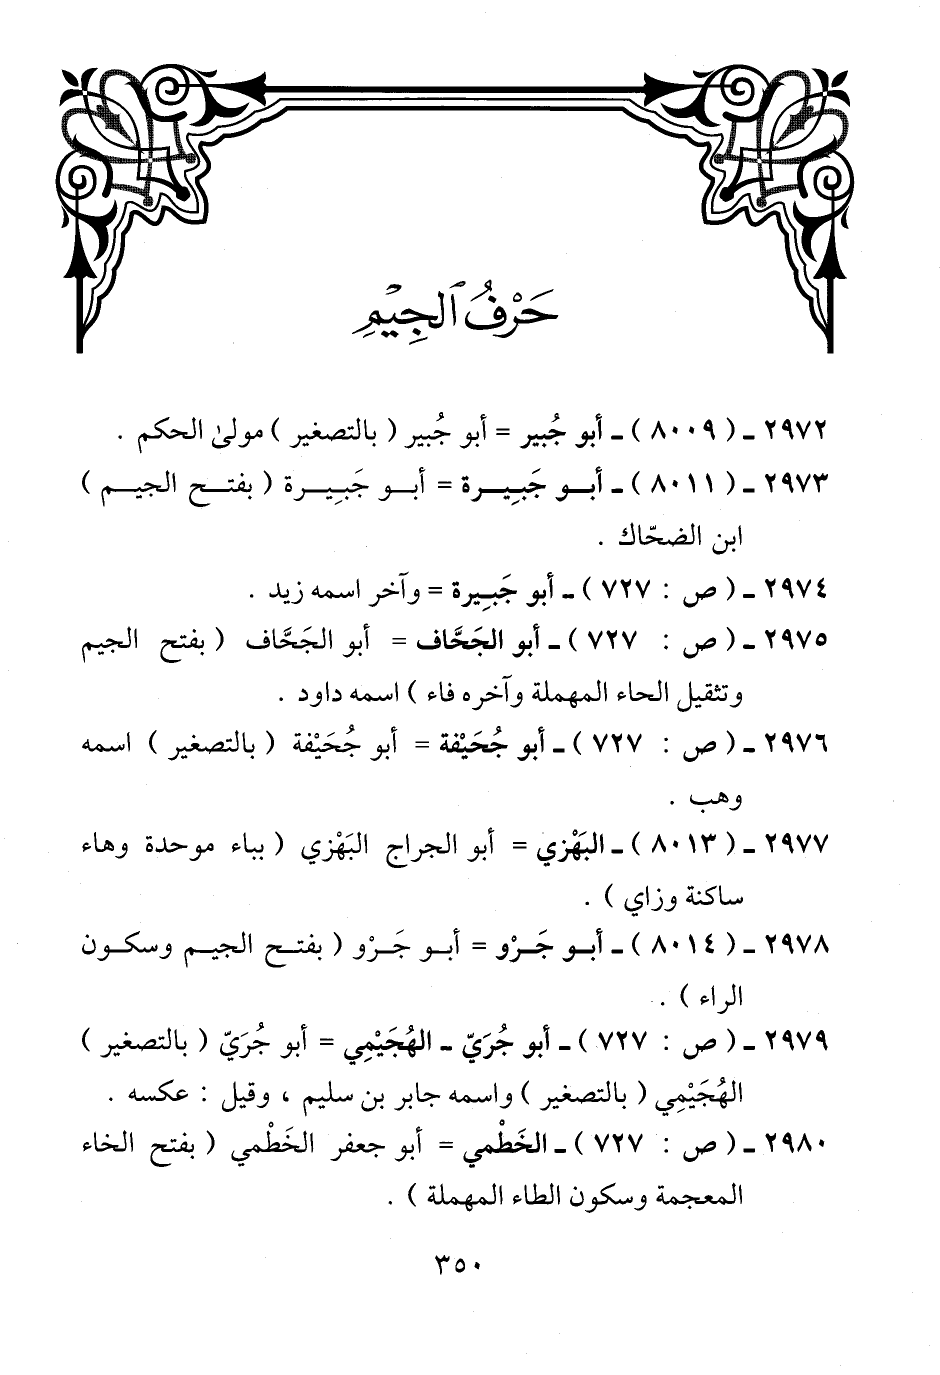 حَرْفُ ٱلْجِيْمِ
٢٩٧٢ ـ ( ٨٠٠٩ ) ـ أبو جُبير = أبو جُبير ( بالتصغير ) مولىٰ الحكم .
٢٩٧٣ ـ ( ٨٠١١ ) ـ أبــو جَبِيــرة = أبــو جَبِيــرة ( بفتــح الجيــم )
ابن الضحّاك .
٢٩٧٤ ـ ( ص : ٧٢٧ ) ـ أبو جَبِيرة = وآخر اسمه زيد .
٢٩٧٥ ـ ( ص : ٧٢٧ ) ـ أبو الجَحَّاف = أبو الجَحَّاف ( بفتح الجيم
وتثقيل الحاء المهملة وآخره فاء ) اسمه داود .
٢٩٧٦ ـ ( ص : ٧٢٧ ) ـ أبو جُحَيْفة = أبو جُحَيْفة ( بالتصغير ) اسمه
وهب .
٢٩٧٧ ـ ( ٨٠١٣ ) ـ البَهْزي = أبو الجراج البَهْزي ( بباء موحدة وهاء
ساكنة وزاي ) .
٢٩٧٨ ـ ( ٨٠١٤ ) ـ أبــو جَــرْو = أبــو جَــرْو ( بفتــح الجيــم وسكــون
الراء ) .
٢٩٧٩ ـ ( ص : ٧٢٧ ) ـ أبو جُرَيّ ـ الهُجَيْمِي = أبو جُرَيّ ( بالتصغير )
الهُجَيْمِي ( بالتصغير ) واسمه جابر بن سليم ، وقيل : عكسه .
٢٩٨٠ ـ ( ص : ٧٢٧ ) ـ الخَطْمي = أبو جعفر الخَطْمي ( بفتح الخاء
المعجمة وسكون الطاء المهملة ) .
٣٥٠